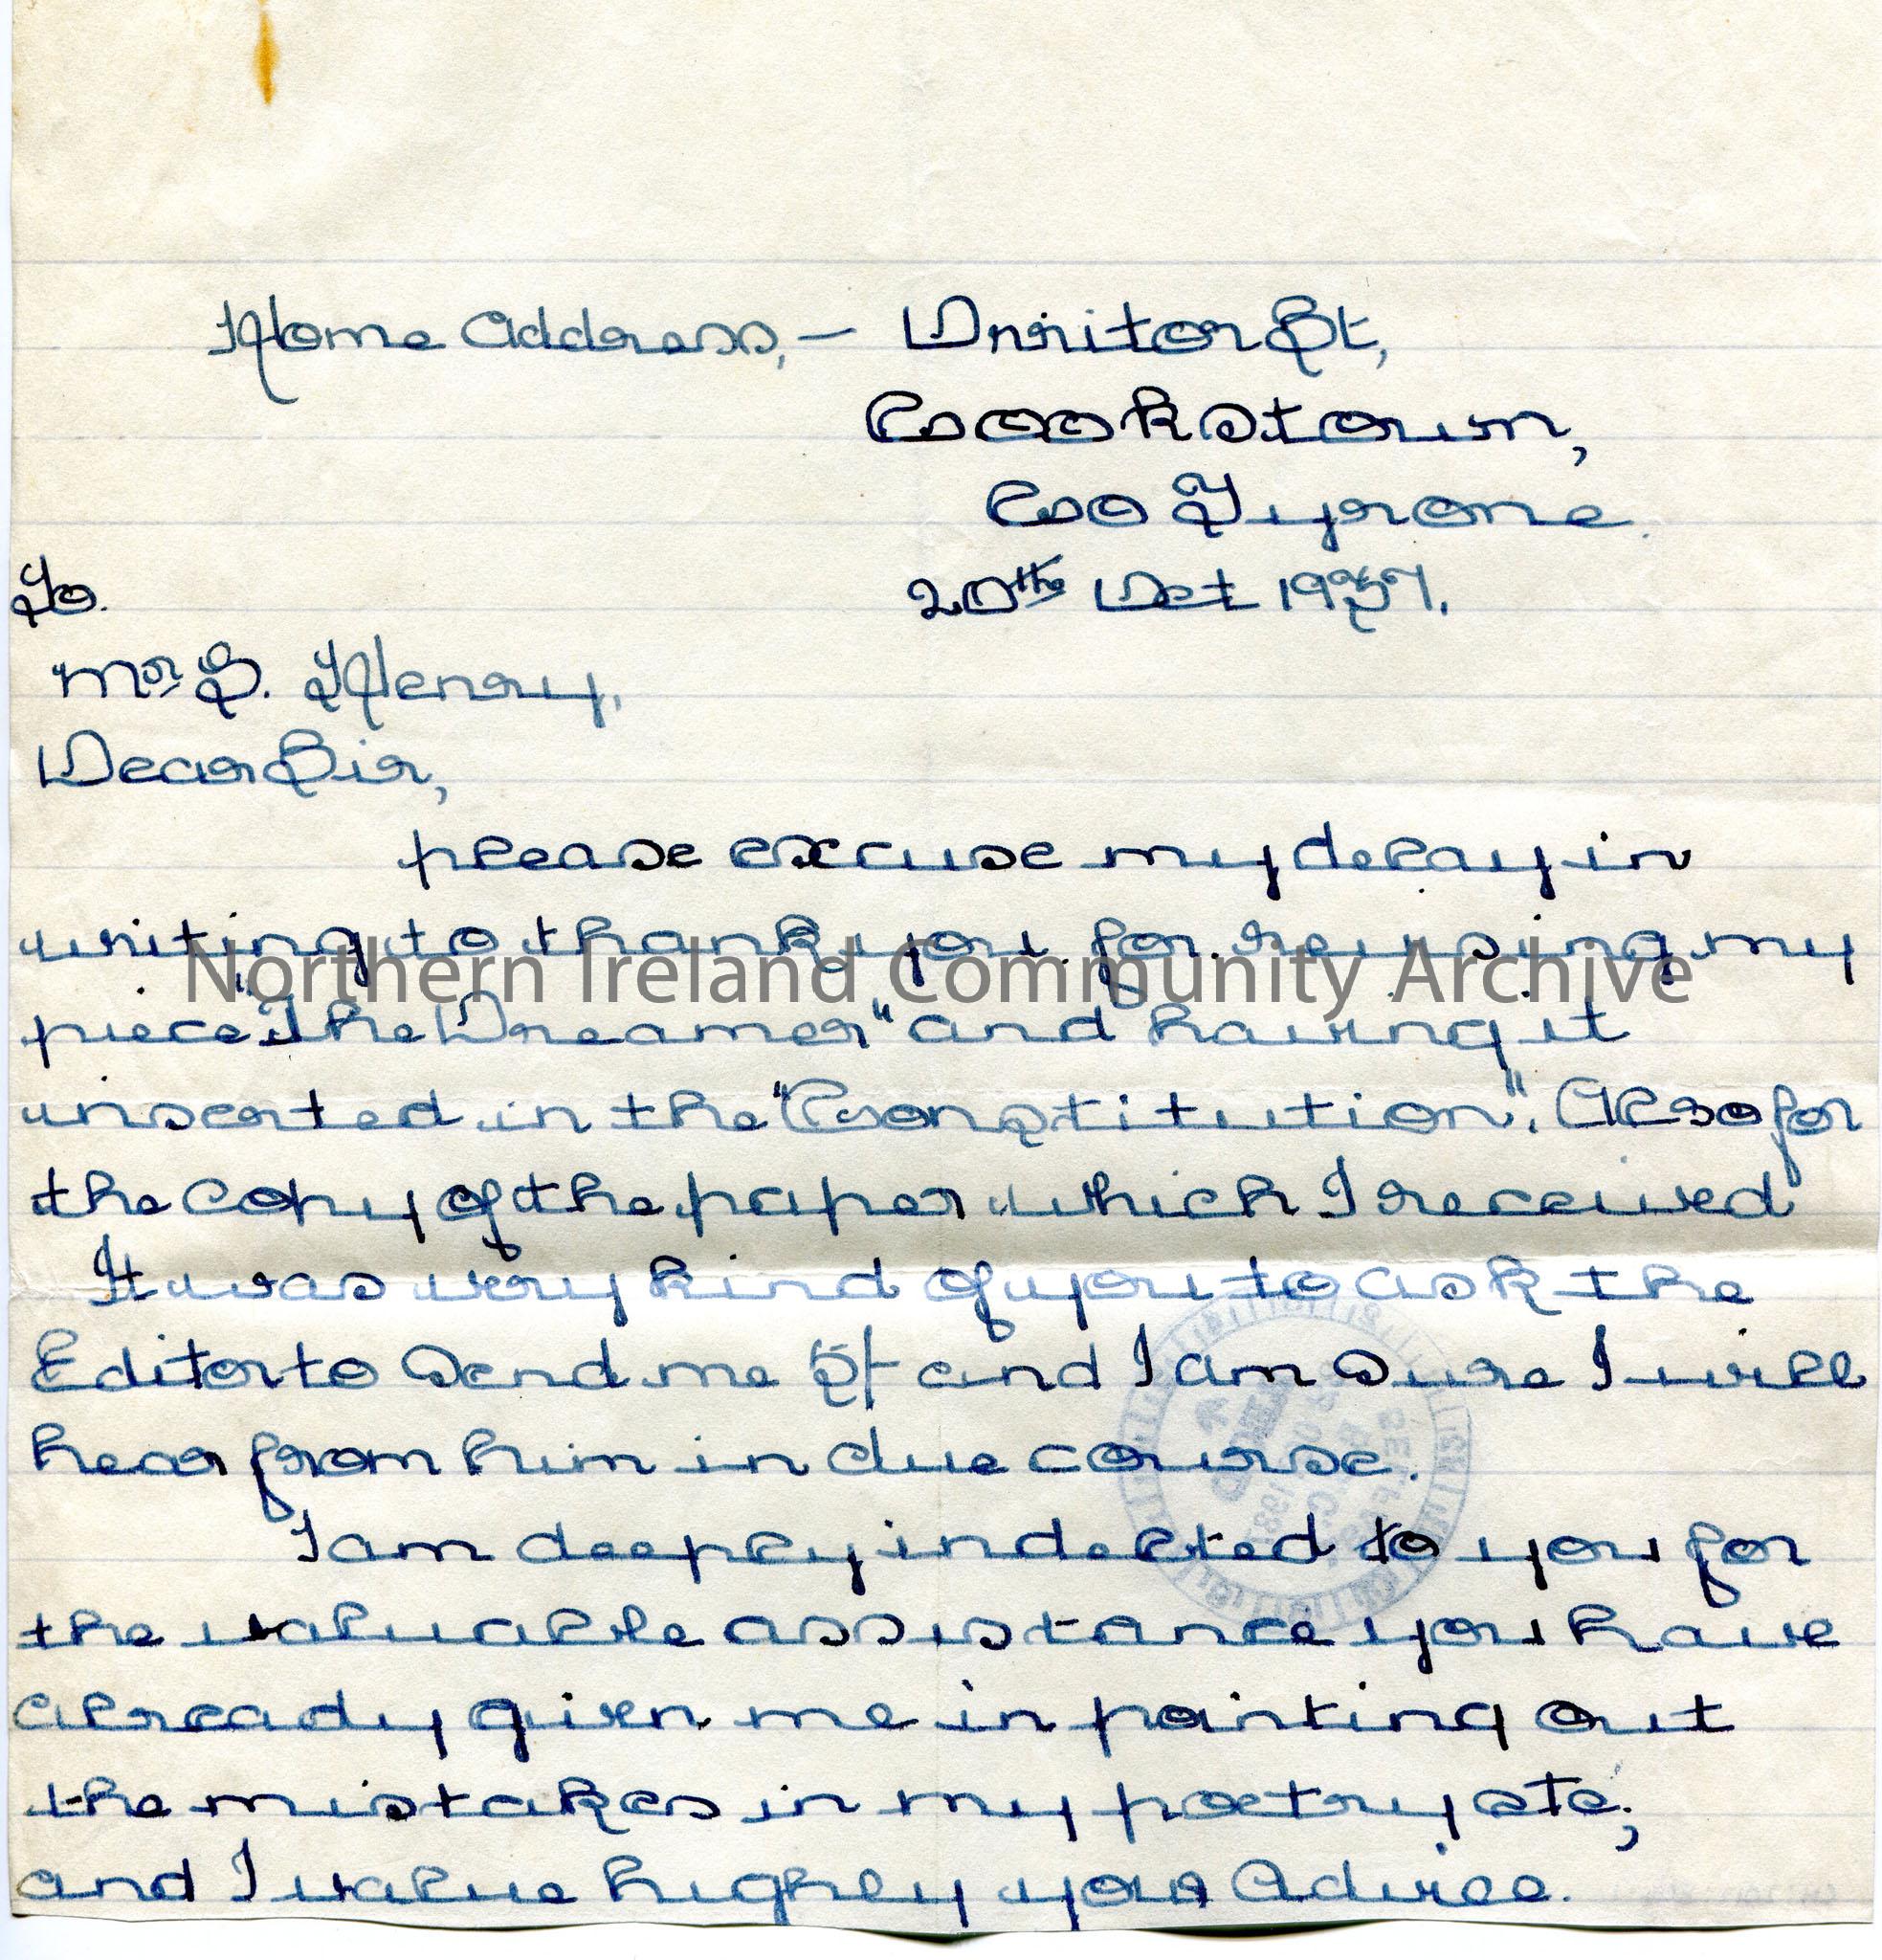 Home Address,— Orritor St,
Cookstown,
Co Tyrone.
To. 20th Oct 1937.
Mr S. Henry,
Dear Sir,
please excuse my delay in
writing to thank you for revising my
Northern Ireland Community Archive
piece "The Dreamer" and having it
inserted in the "Constitution". Also for
the copy of the paper which I received
It was very kind of you to ask the
Editor to send me and I am sure I will
hear from him in due course.
I am deeply indebted to you for
the valuable assistance you have
already given me in pointing out
the mistakes in my poetry etc;
and I value highly your Advice.